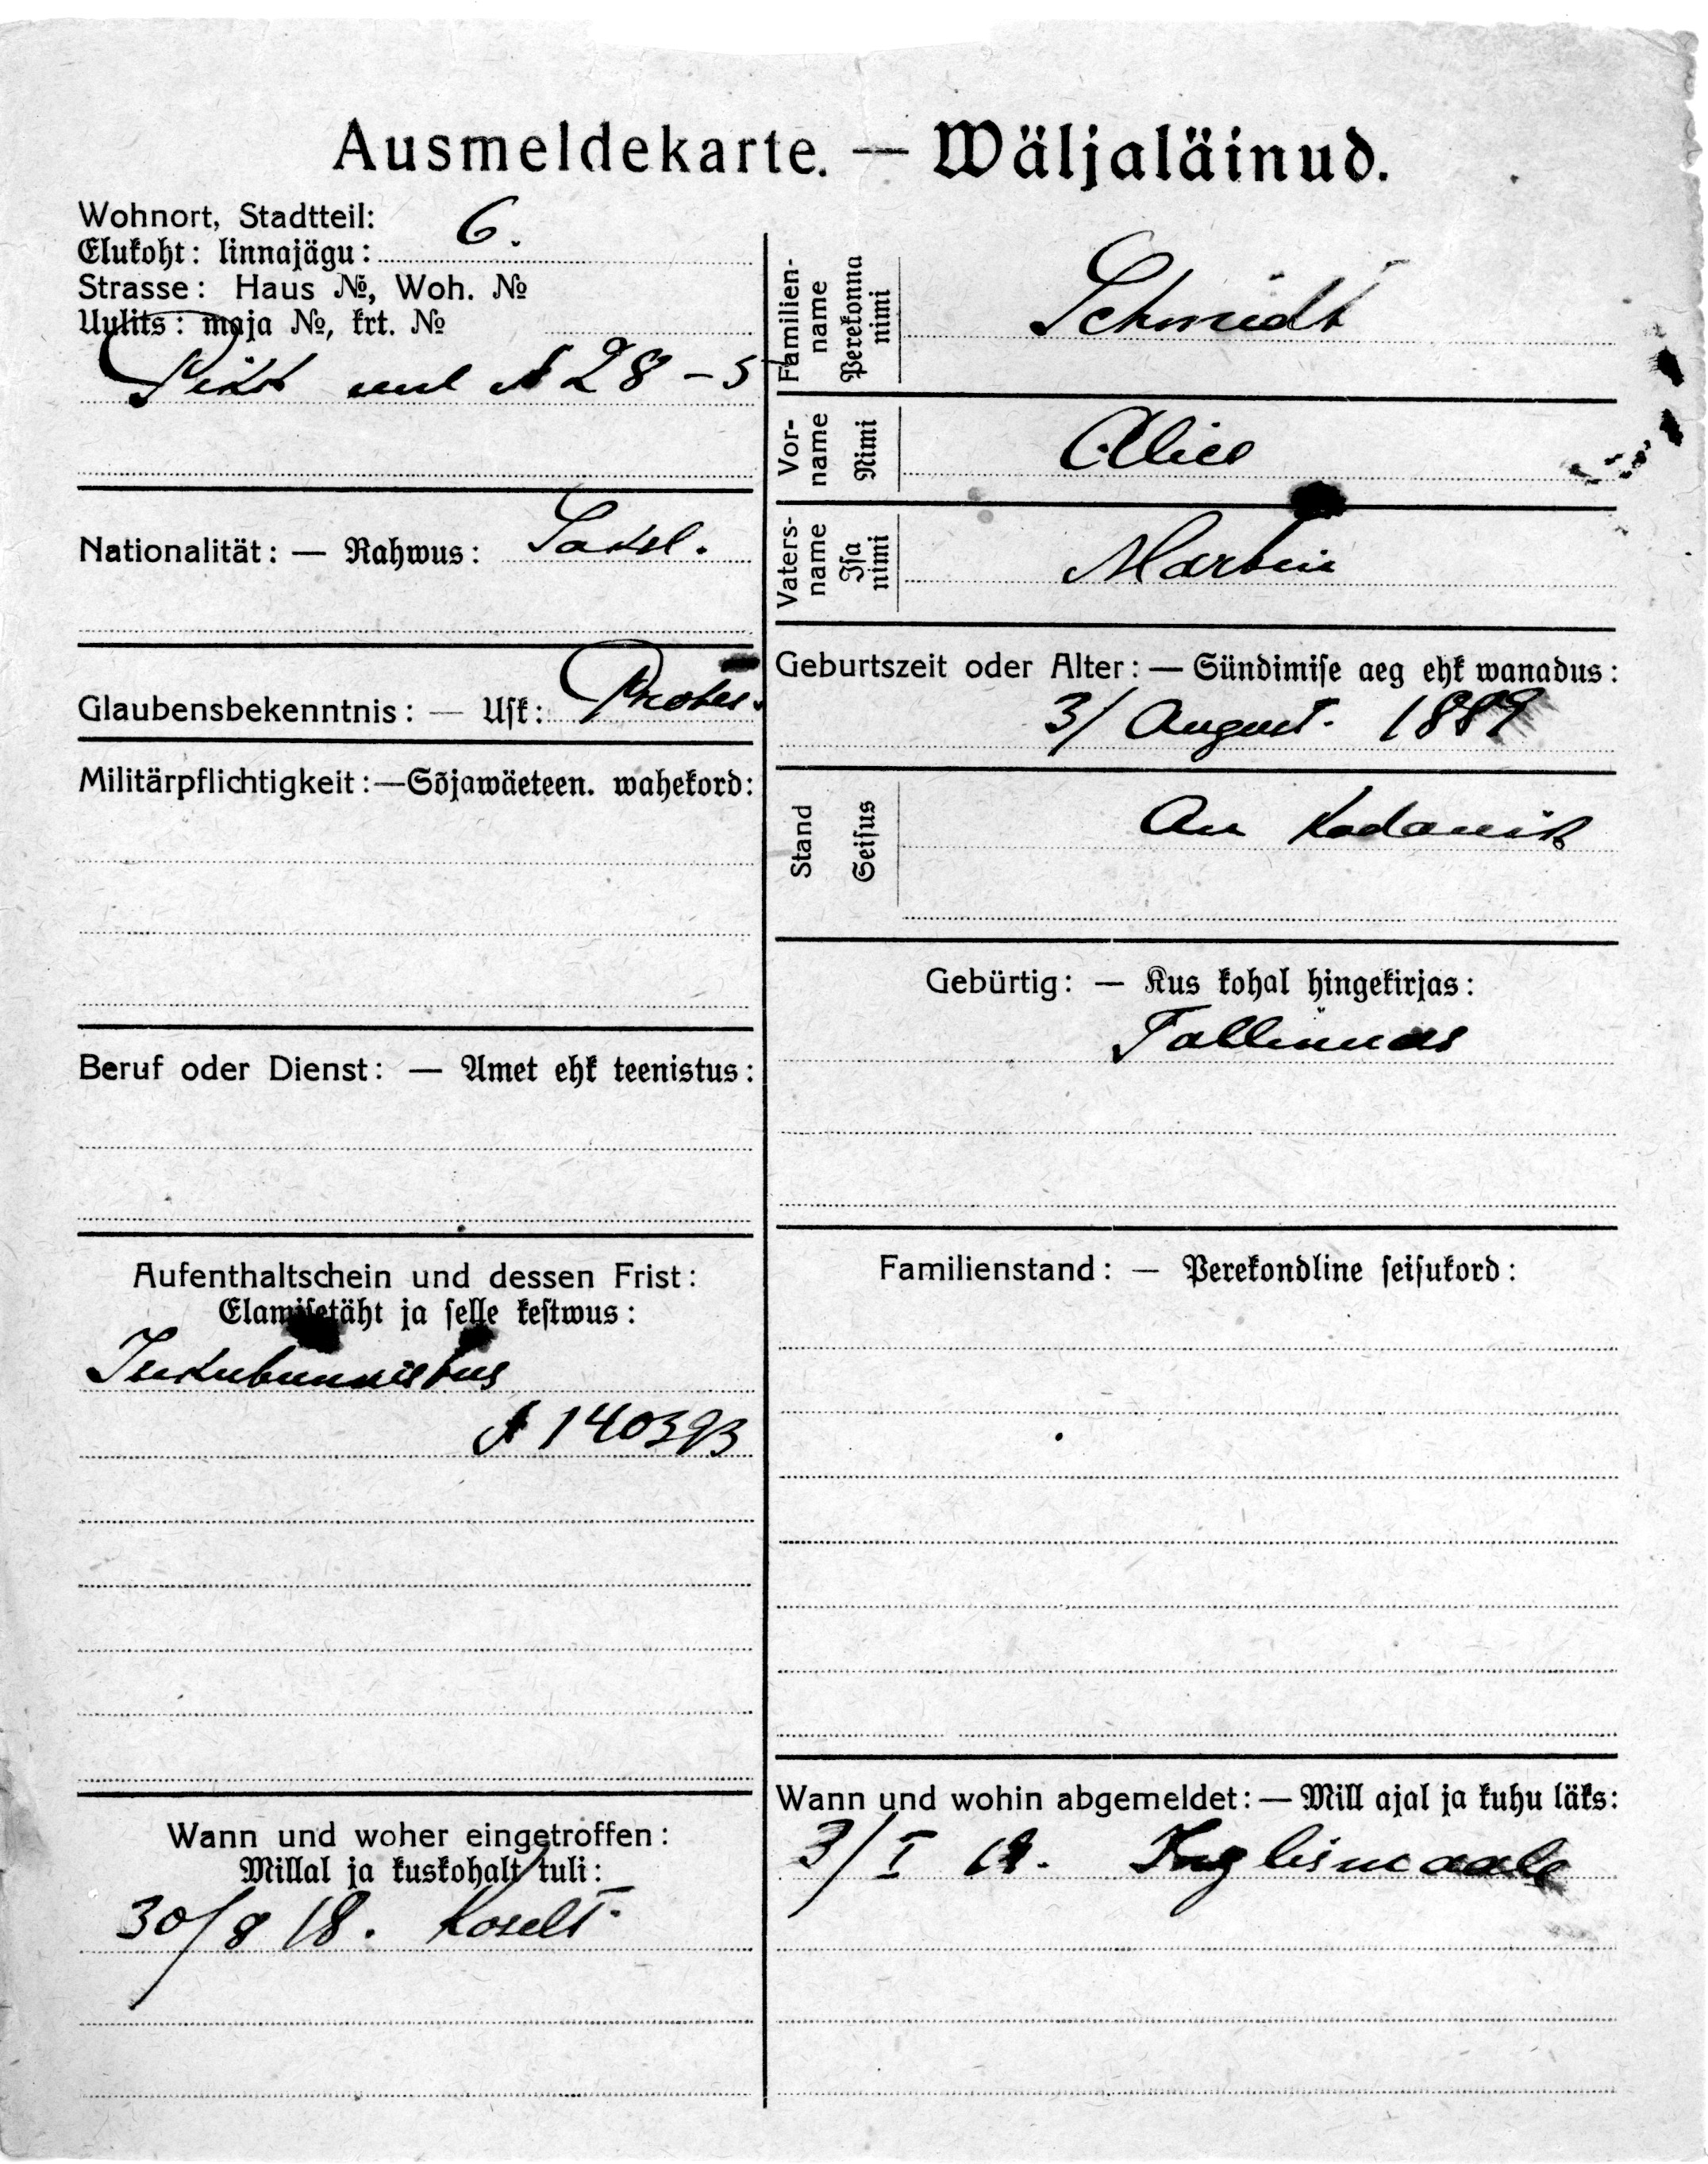 Ausmeldekarte. — Wäljaläinud.
Wohnort, Stadtteil:
Elukoht: linnajägu: 6.
Strasse: Haus №, Woh. №
Uulits: maja №, krt. №
Pikk uul № 28 - 5
Nationalität: — Rahwus: Saksl.
Glaubensbekenntnis: — Usk: Protes.
Militärpflichtigkeit: — Sõjawäeteen. wahekord:
Beruf oder Dienst: — Amet ehk teenistus:
Aufenthaltschein und dessen Frist:
Elamisetäht ja selle kestwus:
Isikutunnistus
№ 140393
Wann und woher eingetroffen:
Millal ja kuskohalt tuli:
30/8 18. Koselt.
Familien-
name
Perekonna
nimi
Schmidt
Vor-
name
Nimi
Alice
Vaters-
name
Isa
nimi
Martin
Geburtszeit oder Alter: — Sündimise aeg ehk wanadus:
3/ August. 1889
Stand
Seisus
Au kodanik
Gebürtig: — Kus kohal hingekirjas:
Tallinnas
Familienstand: — Perekondline seisukord:
Wann und wohin abgemeldet: — Mill ajal ja kuhu läks:
3/I 19. Inglismaale